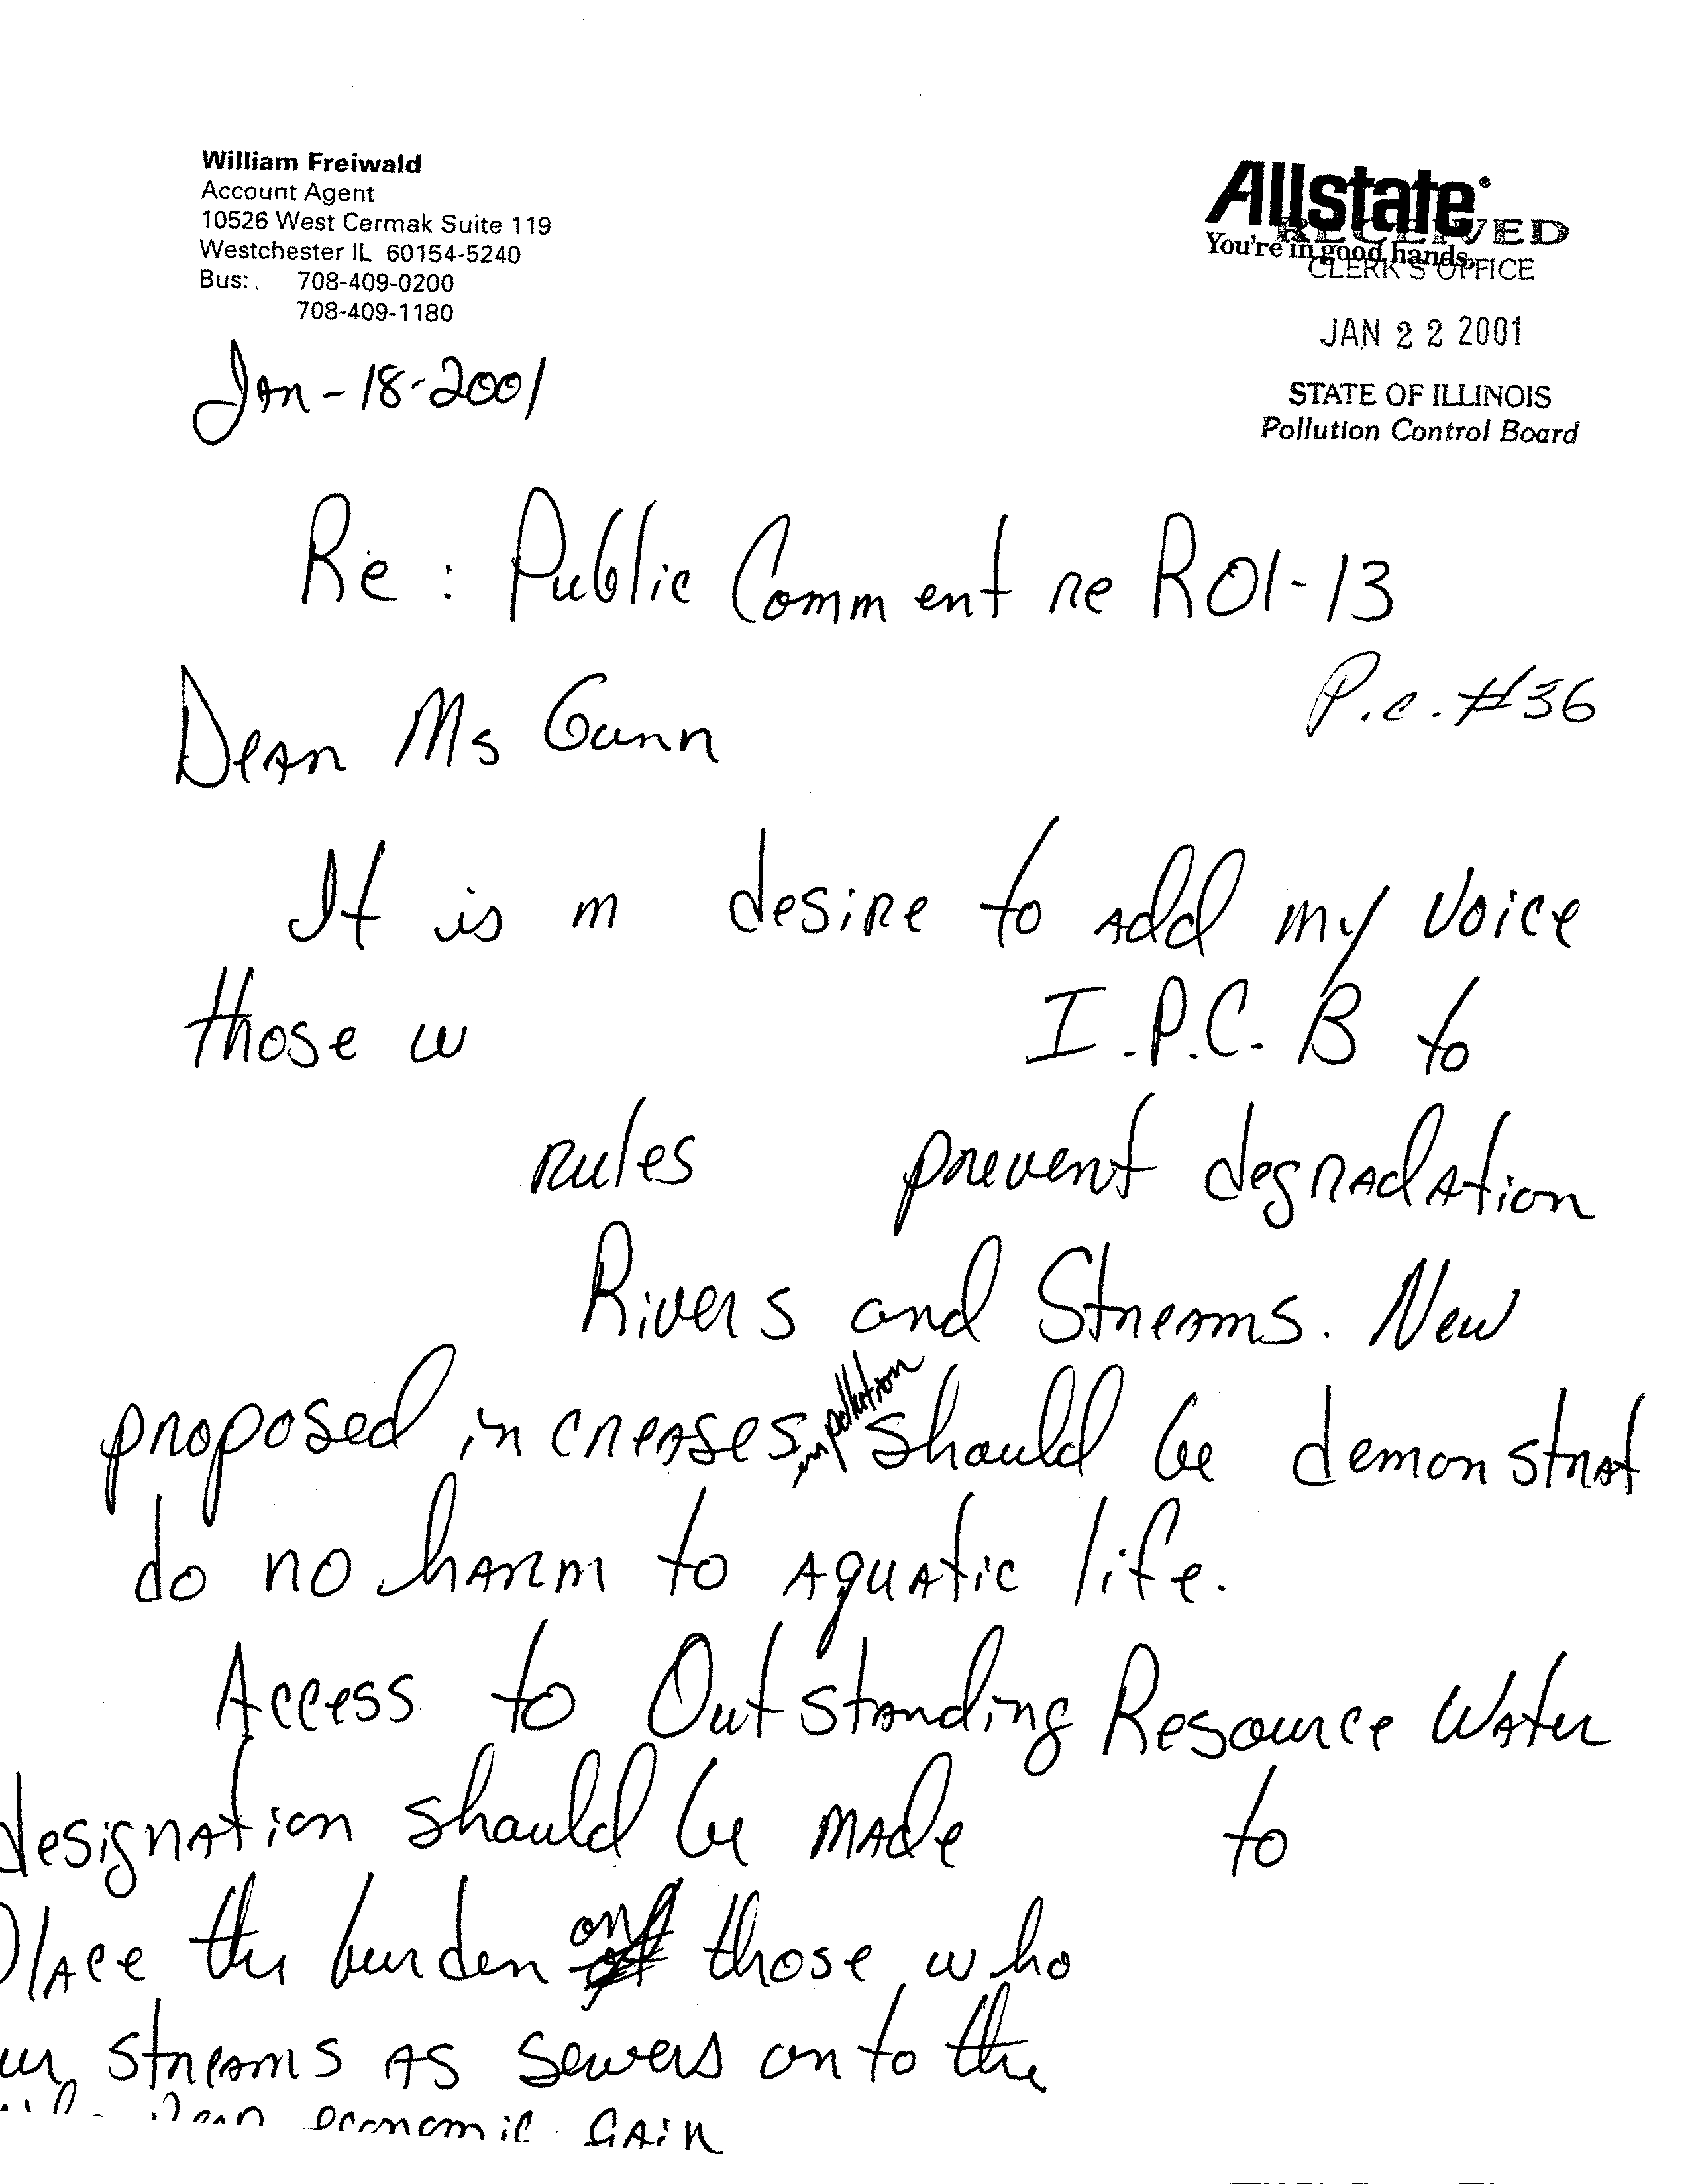 William Freiwald
Account Agent
10526 West Cermak Suite 119
Westchester IL 60154-5240
Bus: 708-409-0200
708-409-1180
Allstate
You're in good hands.
RECEIVED
CLERK'S OFFICE
JAN 22 2001
STATE OF ILLINOIS
Pollution Control Board
Jan-18-2001
Re: Public Comment re R01-13
P.C. #36
Dear Ms Gunn
It is m desire to add my voice
those w I.P.C.B to
rules prevent degradation
Rivers and Streams. New
proposed increases in pollution should be demonstrat
do no harm to aquatic life.
Access to Outstanding Resource Water
designation should be made to
place the burden on those who
streams as sewers onto the
economic gain